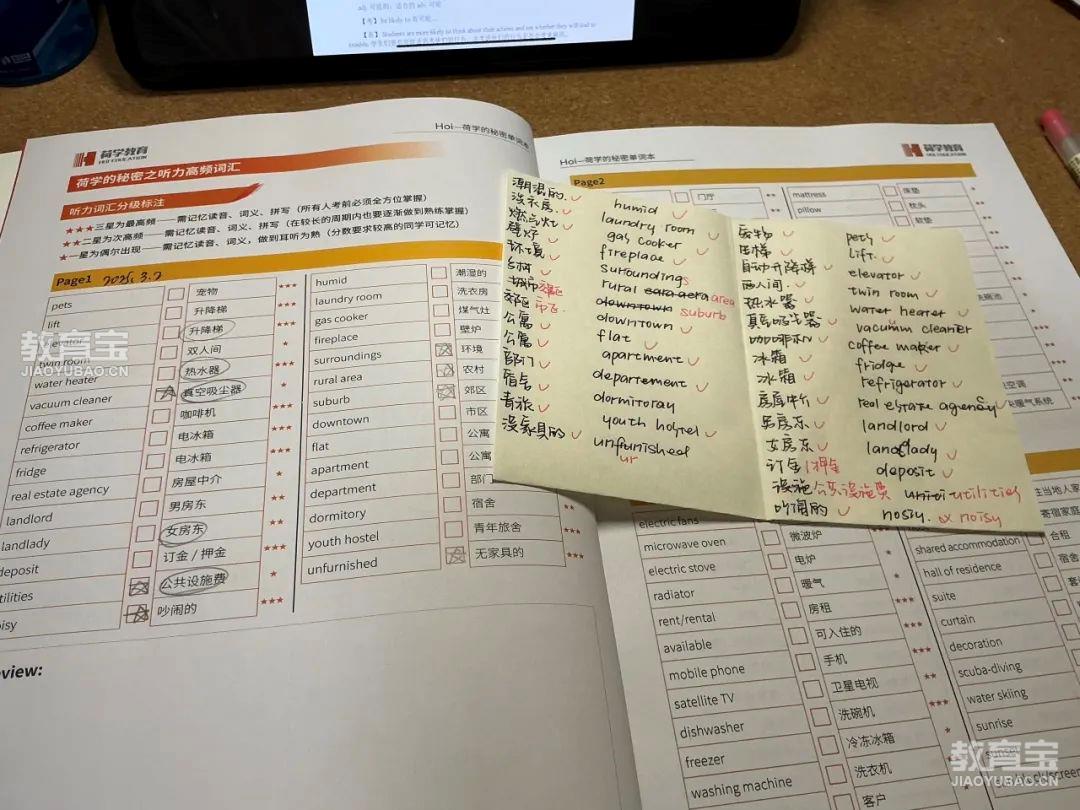 adj. 可能的；适合的 adv. 可能
【考】be likely to 有可能…
【条】Students are more likely to think about their actions and not whether they will lead to
trouble.
荷学教育
HOI EDUCATION
Hoi—荷学的秘密单词本
荷学的秘密之听力高频词汇
听力词汇分级标注
★★★三星为最高频——需记忆读音、词义、拼写（所有人考前必须全方位掌握）
★★二星为次高频——需记忆读音、词义、拼写（在较长的周期内也要逐渐做到熟练掌握）
★一星为偶尔出现——需记忆读音、词义，做到耳听为熟（分数要求较高的同学可记忆）
Page1 2025.3.2
pets 宠物 ★★★
lift 升降梯
elevator 升降梯 ★★★
twin room 双人间
water heater 热水器 ★★★
vacuum cleaner 真空吸尘器 ★
coffee maker 咖啡机 ★★★
refrigerator 电冰箱
fridge 电冰箱 ★★★
real estate agency 房屋中介 ★
landlord 男房东 ★★★
landlady 女房东 ★
deposit 订金/押金 ★★★
tilities 公共设施费 ★
isy 吵闹的 ★★★
humid 潮湿的
laundry room 洗衣房
gas cooker 煤气灶
fireplace 壁炉
surroundings 环境
rural area 农村
suburb 郊区
downtown 市区
flat 公寓
apartment 公寓
department 部门
dormitory 宿舍 ★★
youth hostel 青年旅舍 ★★
unfurnished 无家具的 ★★★
view:
潮湿的 humid
洗衣房 laundry room
燃气灶 gas cooker
壁炉 fireplace
环境 surroundings
乡村 rural area
城市 郊区 downtown suburb
郊区 市区 downtown
公寓 flat
公寓 apartment
部门 departement
宿舍 dormitoray
青旅 youth hostel
没家具的 unfrunished
ur
宠物 pets
电梯 lift
自动升降梯 elevator
两人间 twin room
热水器 water heater
真空吸尘器 vacumm cleaner
咖啡机 coffee maker
冰箱 fridge
冰箱 refrigerator
房屋中介 real estate agency
男房东 landlord
女房东 landlady
订金/押金 deposit
设施 公共设施费 utilities
吵闹的 nosiy. ex noisy
Hoi—荷学的秘密单词本
荷学教育
HOI EDUCATION
Page2
门厅 ★★
mattress 床垫 ★
pillow 枕头
软垫
空调
暖气系统
electric fans
microwave oven 微波炉
electric stove 电炉 ★
radiator 暖气 ★
rent/rental 房租 ★★★
available 可入住的 ★★★
mobile phone 手机 ★★★
satellite TV 卫星电视 ★★
dishwasher 洗碗机 ★★★
freezer 冷冻冰箱 ★
washing machine 洗衣机
客户
主当地人家
寄宿家庭
shared accommodation 合租
hall of residence 宿舍
suite 套
curtain
decoration
scuba-diving
water skiing
sunrise
sunset
教育宝
JIAOYUBAO.CN
教育宝
JIAOYUBAO.CN